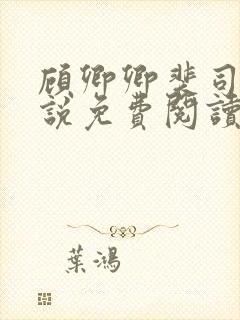 顾卿卿裴司
說免費閱讀
葉鴻